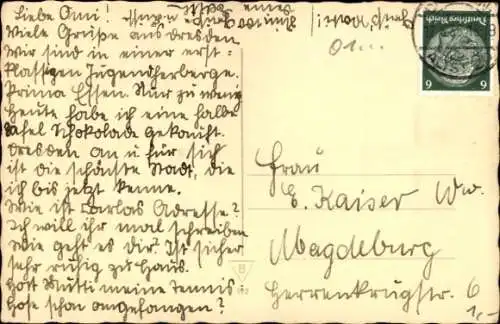 Liebe Omi!
Viele Grüße aus Dresden.
Wir sind in einer erst-
klassigen Jugendherberge.
Prima Essen. Nur zu wenig
Heute habe ich eine halbe
Tafel Schokolade gekauft.
Dresden an u für sich
ist die schönste Stadt, die
ich bis jetzt kenne.
Wie ist Carlas Adresse?
Ich will ihr mal schreiben
Wie geht es dir? Ist sicher
sehr ruhig zu Haus.
Hat Mutti meine Tennis
Hose schon angefangen?
Deutsches Reich
6 6
01...
Frau
E. Kaiser Ww.
Magdeburg
Herrenkrugstr. 6
1,-
B